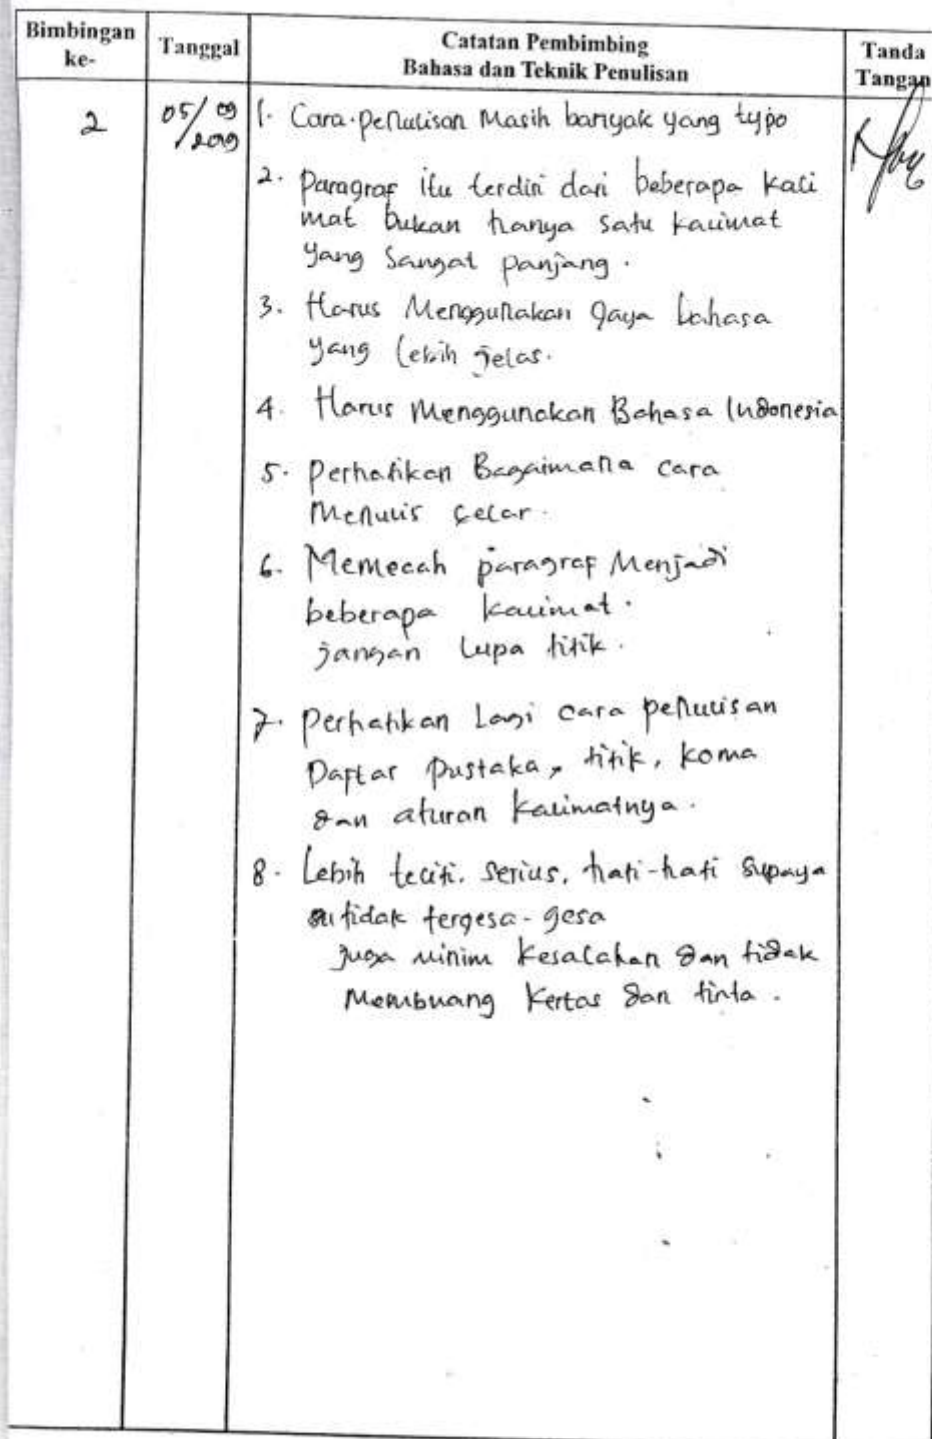 Bimbingan ke-
Tanggal
Catatan Pembimbing
Bahasa dan Teknik Penulisan
Tanda Tangan
2
05/09
/2019
1. Cara penulisan Masih banyak yang typo
2. Paragraf itu terdiri dari beberapa kali
mat bukan hanya satu kalimat
yang Sangat panjang.
3. Harus Menggunakan gaya bahasa
yang lebih jelas.
4. Harus Menggunakan Bahasa Indonesia
5. Perhatikan Bagaimana cara
Menulis gelar.
6. Memecah paragraf Menjadi
beberapa kalimat.
jangan Lupa titik.
7. Perhatikan Lagi cara penulisan
Daftar Pustaka, titik, koma
dan aturan kalimatnya.
8. Lebih teliti. Serius, hati-hati supaya
tidak tergesa-gesa
Juga minim kesalahan dan tidak
Membuang kertas dan tinta.